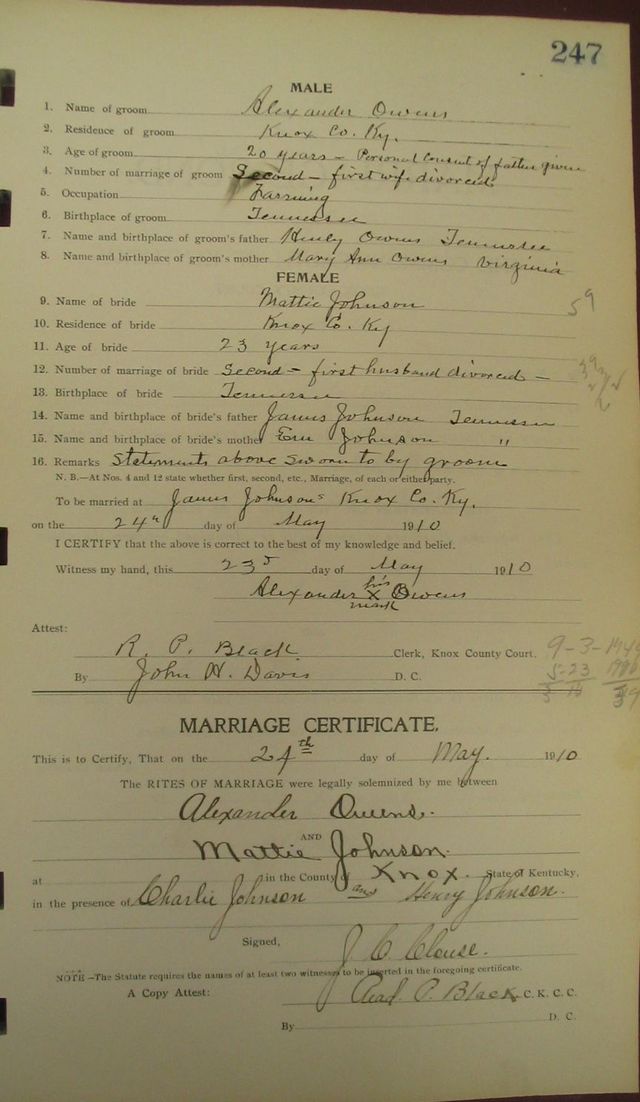 247
MALE
1. Name of groom Alexander Owens
2. Residence of groom Knox Co. Ky.
3. Age of groom 20 years - Personal Consent of father given
4. Number of marriage of groom Second - first wife divorced
5. Occupation Farming
6. Birthplace of groom Tennessee
7. Name and birthplace of groom's father Henly Owens Tennessee
8. Name and birthplace of groom's mother Mary Ann Owens Virginia
FEMALE
9. Name of bride Mattie Johnson
59
10. Residence of bride Knox Co. Ky
11. Age of bride 23 years
12. Number of marriage of bride Second - first husband divorced -
13. Birthplace of bride Tennessee
14. Name and birthplace of bride's father James Johnson Tennessee
15. Name and birthplace of bride's mother Johnson "
16. Remarks Statements above sworn to by groom
N. B.—At Nos. 4 and 12 state whether first, second, etc., Marriage, of each or either party.
To be married at James Johnson's Knox Co. Ky.
on the 24th day of May 1910
I CERTIFY that the above is correct to the best of my knowledge and belief.
Witness my hand, this 23d day of May 1910
his
Alexander X Owens
mark
Attest:
R. P. Black Clerk, Knox County Court.
By John H. Davis D. C.
9-3-
5-23
MARRIAGE CERTIFICATE.
This is to Certify, That on the 24th day of May. 1910
The RITES OF MARRIAGE were legally solemnized by me between
Alexander Owens.
AND
Mattie Johnson.
at in the County of Knox. State of Kentucky,
in the presence of Charlie Johnson and Henry Johnson.
Signed,
J. C. Clouse.
NOTE—The Statute requires the names of at least two witnesses to be inserted in the foregoing certificate.
A Copy Attest: Read. P. Black C. K. C. C.
By D. C.